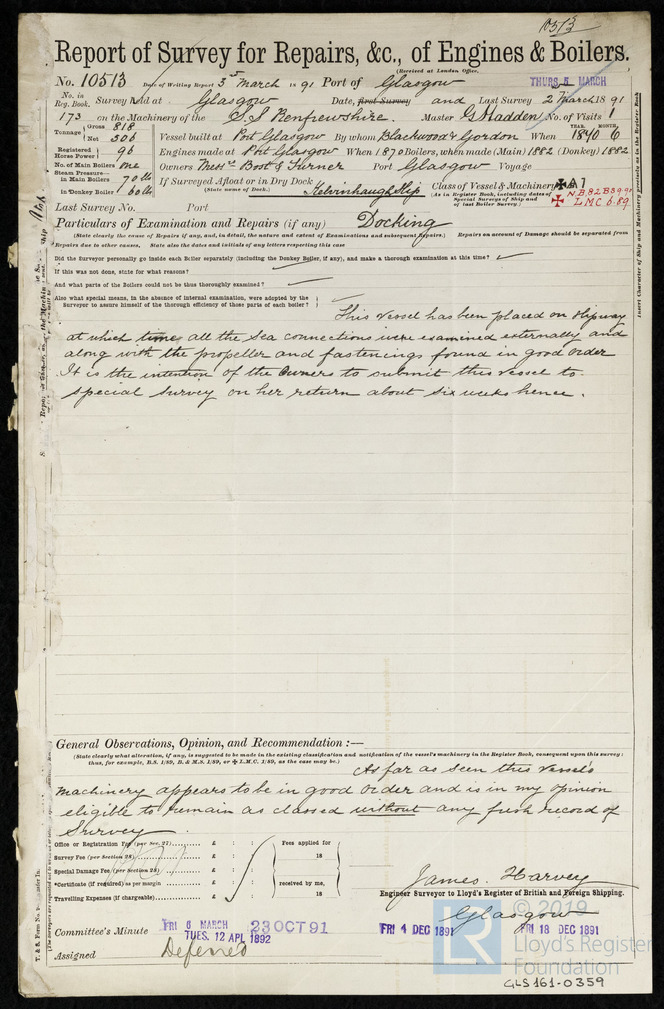 10513
Report of Survey for Repairs, &c., of Engines & Boilers.
(Received at London Office,
No. 10513 Date of Writing Report 3rd March 1891 Port of Glasgow THURS 5 MARCH
No. in Reg. Book. Survey held at Glasgow Date, first Survey and Last Survey 2 March 1891
173 on the Machinery of the S.S Renfrewshire. Master G Hadden No. of Visits 1
Tonnage Gross 818 Net 306 Vessel built at Port Glasgow By whom Blackwood & Gordon When YEAR. MONTH. 1870 6
Registered Horse Power 96 Engines made at Port Glasgow When 1870 Boilers, when made (Main) 1882 (Donkey) 1882
No. of Main Boilers one Owners Messrs Port Glasgow Voyage
Steam Pressure— in Main Boilers 70 lbs If Surveyed Afloat or in Dry Dock Kelvinhaugh Slip Class of Vessel & Machinery ✠ A1
in Donkey Boiler 60 lbs (State name of Dock.) (As in Register Book, including dates of Special Surveys of Ship and of last Boiler Survey.) NB82 BS9.91
✠ LMC 6.89
Last Survey No. Port
Particulars of Examination and Repairs (if any) Docking
(State clearly the cause of Repairs if any, and, in detail, the nature and extent of Examinations and subsequent Repairs.) Repairs on account of Damage should be separated from
Repairs due to other causes, State also the dates and initials of any letters respecting this case
Did the Surveyor personally go inside each Boiler separately (including the Donkey Boiler, if any), and make a thorough examination at this time?
If this was not done, state for what reasons?
And what parts of the Boilers could not be thus thoroughly examined?
Also what special means, in the absence of internal examination, were adopted by the
Surveyor to assure himself of the thorough efficiency of those parts of each boiler?
This vessel has been placed on slipway
at which time all the sea connections were examined externally and
along with the propeller and fastenings found in good order
It is the intention of the owners to submit this vessel to
special survey on her return about six weeks hence.
General Observations, Opinion, and Recommendation :—
(State clearly what alteration, if any, is suggested to be made in the existing classification and notification of the vessel's machinery in the Register Book, consequent upon this survey:
thus, for example, B.S. 1/89, B. & M.S. 1/89, or ✠ L.M.C. 1/89, as the case may be.)
As far as seen this vessel's
machinery appears to be in good order and is in my opinion
eligible to remain as classed without any fresh record of
Survey
Office or Registration Fee (per Sec. 27) £ : : Fees applied for
Survey Fee (per Section 28) £ : : 18
Special Damage Fee (per Section 28) £ : :
*Certificate (if required) as per margin £ : : received by me,
Travelling Expenses (if chargeable) £ : : 18
James Harvey
Engineer Surveyor to Lloyd's Register of British and Foreign Shipping.
Glasgow
Committee's Minute FRI 6 MARCH 23 OCT 91 FRI 4 DEC 1891 FRI 18 DEC 1891
TUES. 12 APL 1892
Assigned Deferred
Insert Character of Ship and Machinery precisely as in the Register Book
© 2019
LR Lloyd's Register
Foundation
GLS161-0359